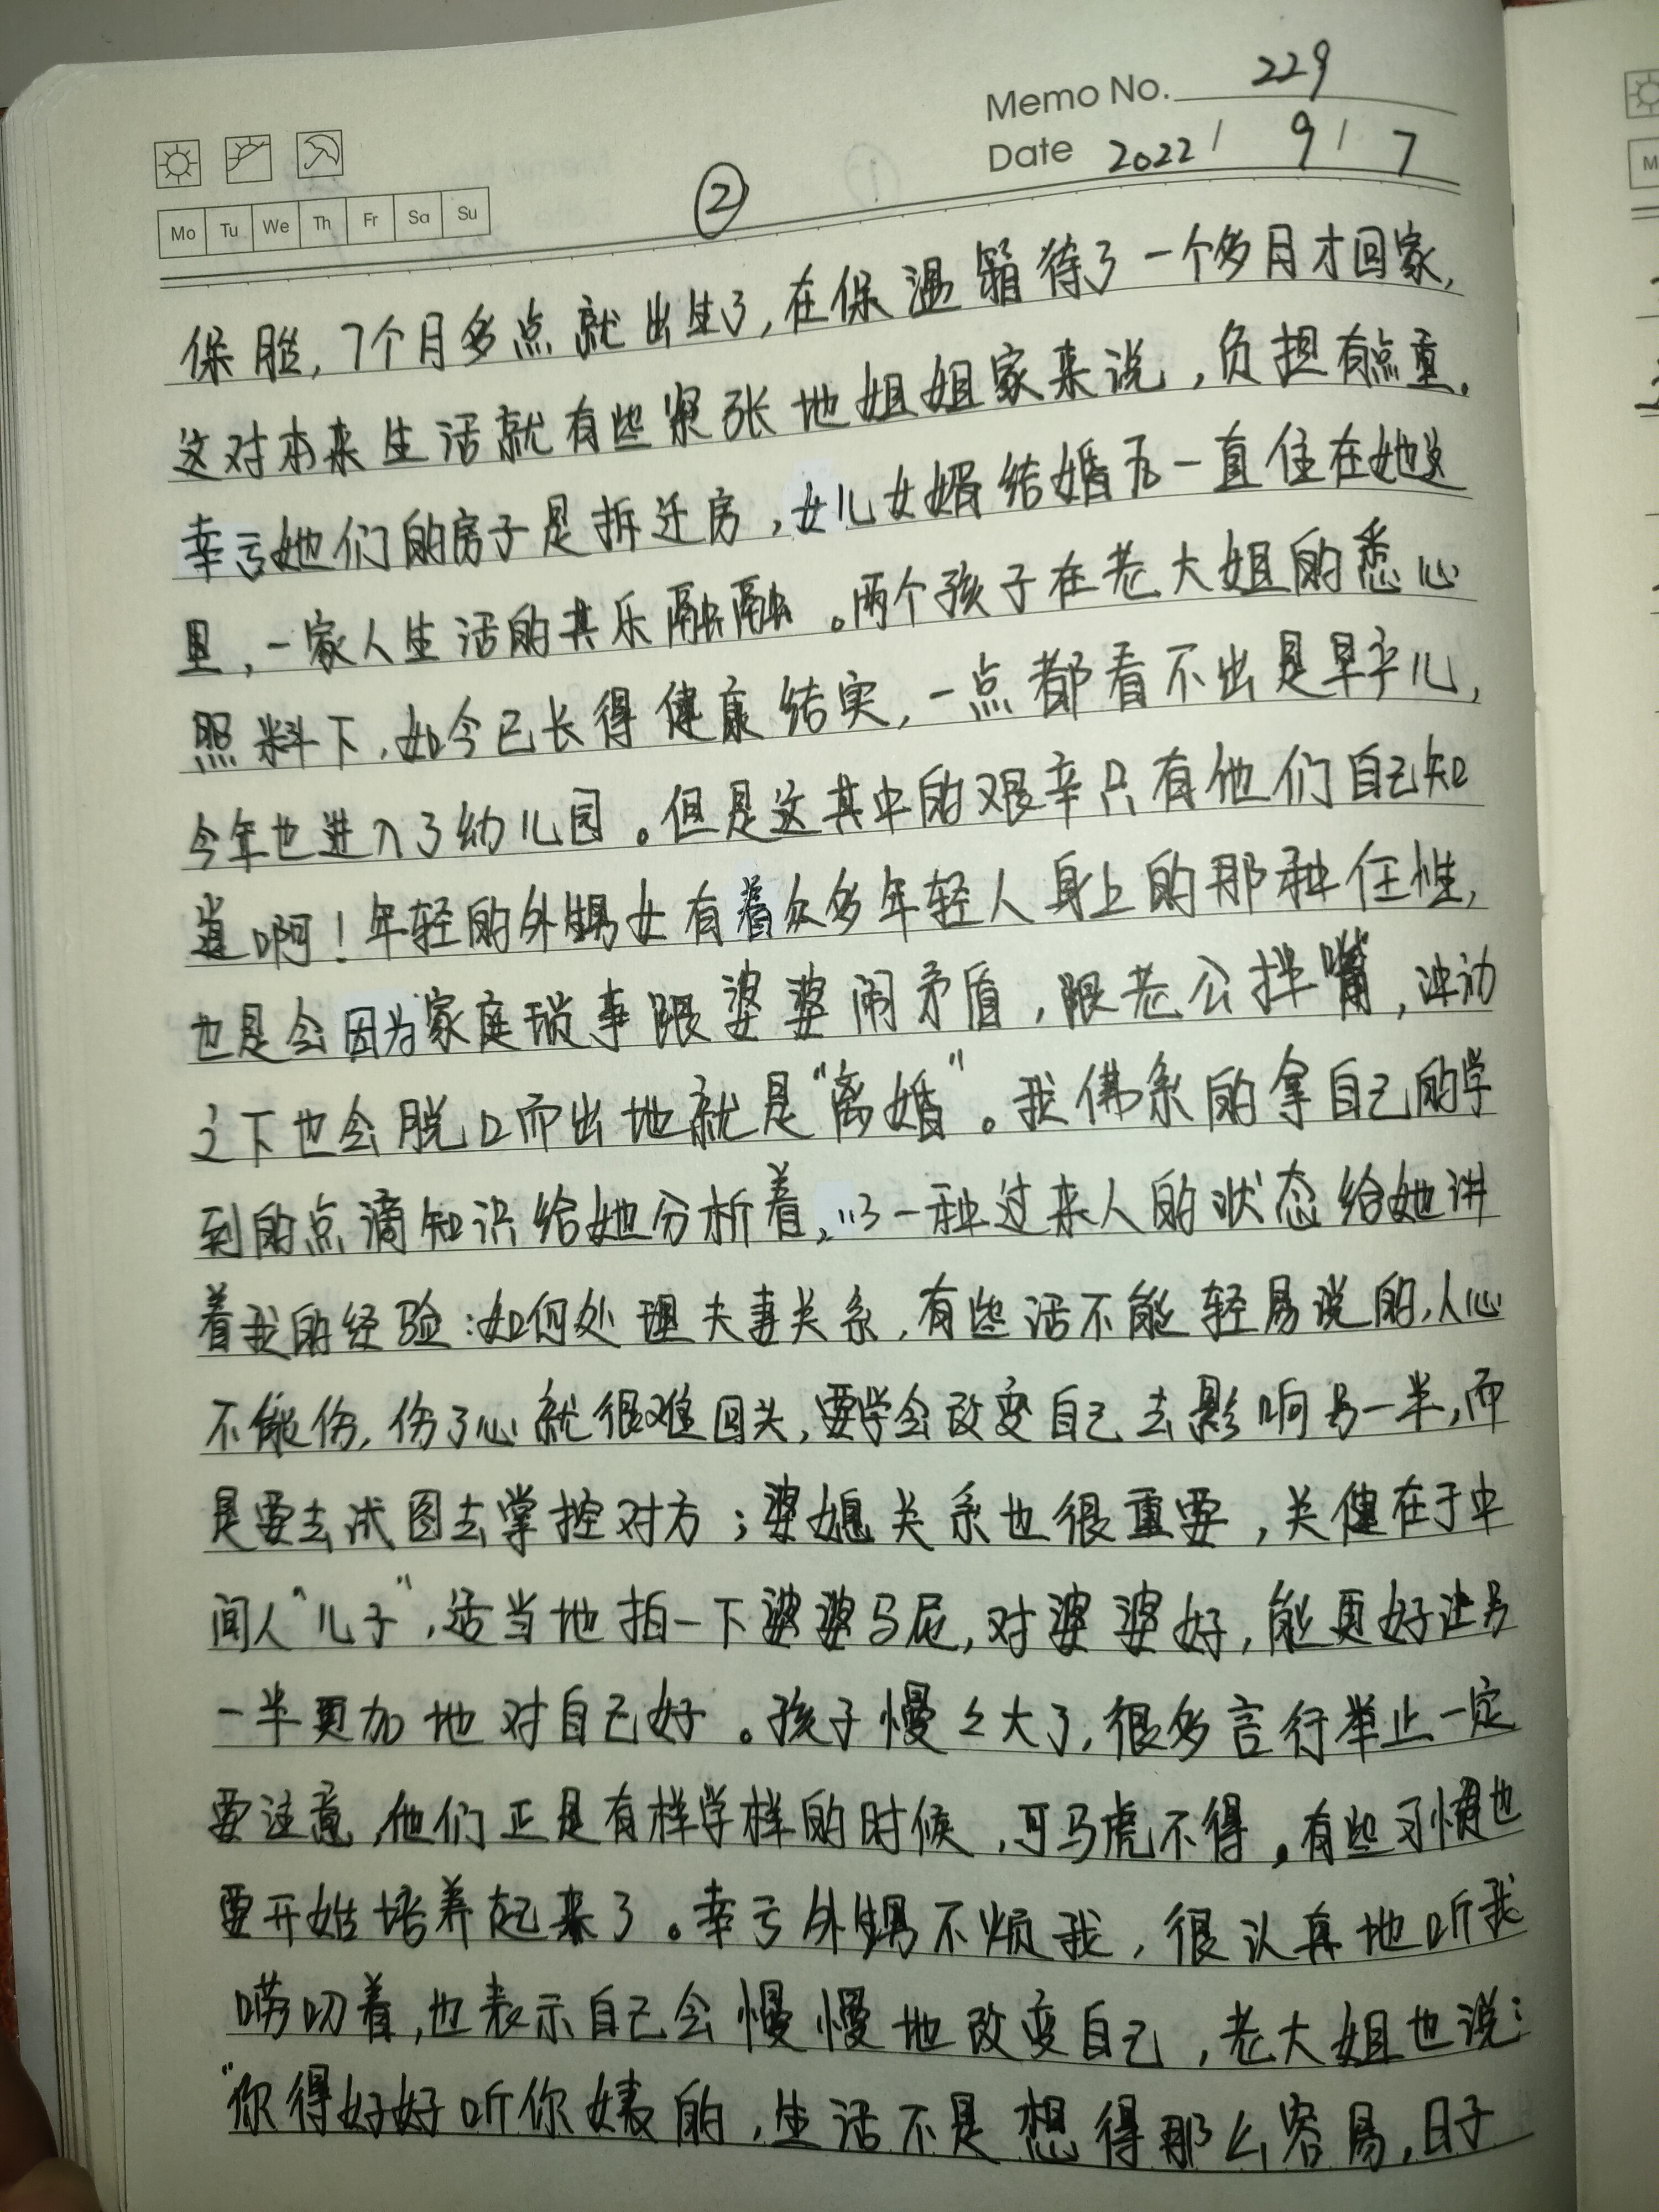 Memo No. 229
Date 2022 / 9 / 7
Mo Tu We Th Fr Sa Su
②
保胎，7个月多点就出生了，在保温箱待了一个多月才回家，
这对本来生活就有些紧张地姐姐家来说，负担有点重。
幸亏她们的房子是拆迁房，女儿女婿结婚后一直住在她这
里，一家人生活的其乐融融。两个孩子在老大姐的悉心
照料下，如今已长得健康结实，一点都看不出是早产儿，
今年也进入了幼儿园。但是这其中的艰辛只有他们自己知
道啊！年轻的外甥女有着众多年轻人身上的那种任性，
也是会因为家庭琐事跟婆婆闹矛盾，跟老公拌嘴，冲动
之下也会脱口而出地就是“离婚”。我佛系的拿自己的学
到的点滴知识给她分析着，以一种过来人的状态给她讲
着我的经验：如何处理夫妻关系，有些话不能轻易说的，人心
不能伤，伤了心就很难回头，要学会改变自己去影响另一半，而
是要去试图去掌控对方；婆媳关系也很重要，关健在于中
间人“儿子”，适当地拍一下婆婆马屁，对婆婆好，能更好让另
一半更加地对自己好。孩子慢々大了，很多言行举止一定
要注意，他们正是有样学样的时候，可马虎不得。有些习惯也
要开始培养起来了。幸亏外甥不烦我，很认真地听我
唠叨着，也表示自己会慢慢地改变自己，老大姐也说：
“你得好好听你姨的，生活不是想得那么容易，日子